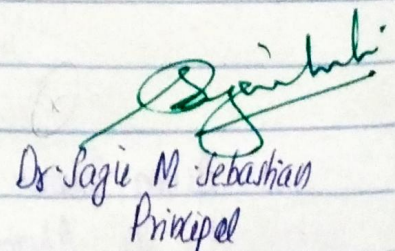 Dr. Sagie M Sebastian
Principal